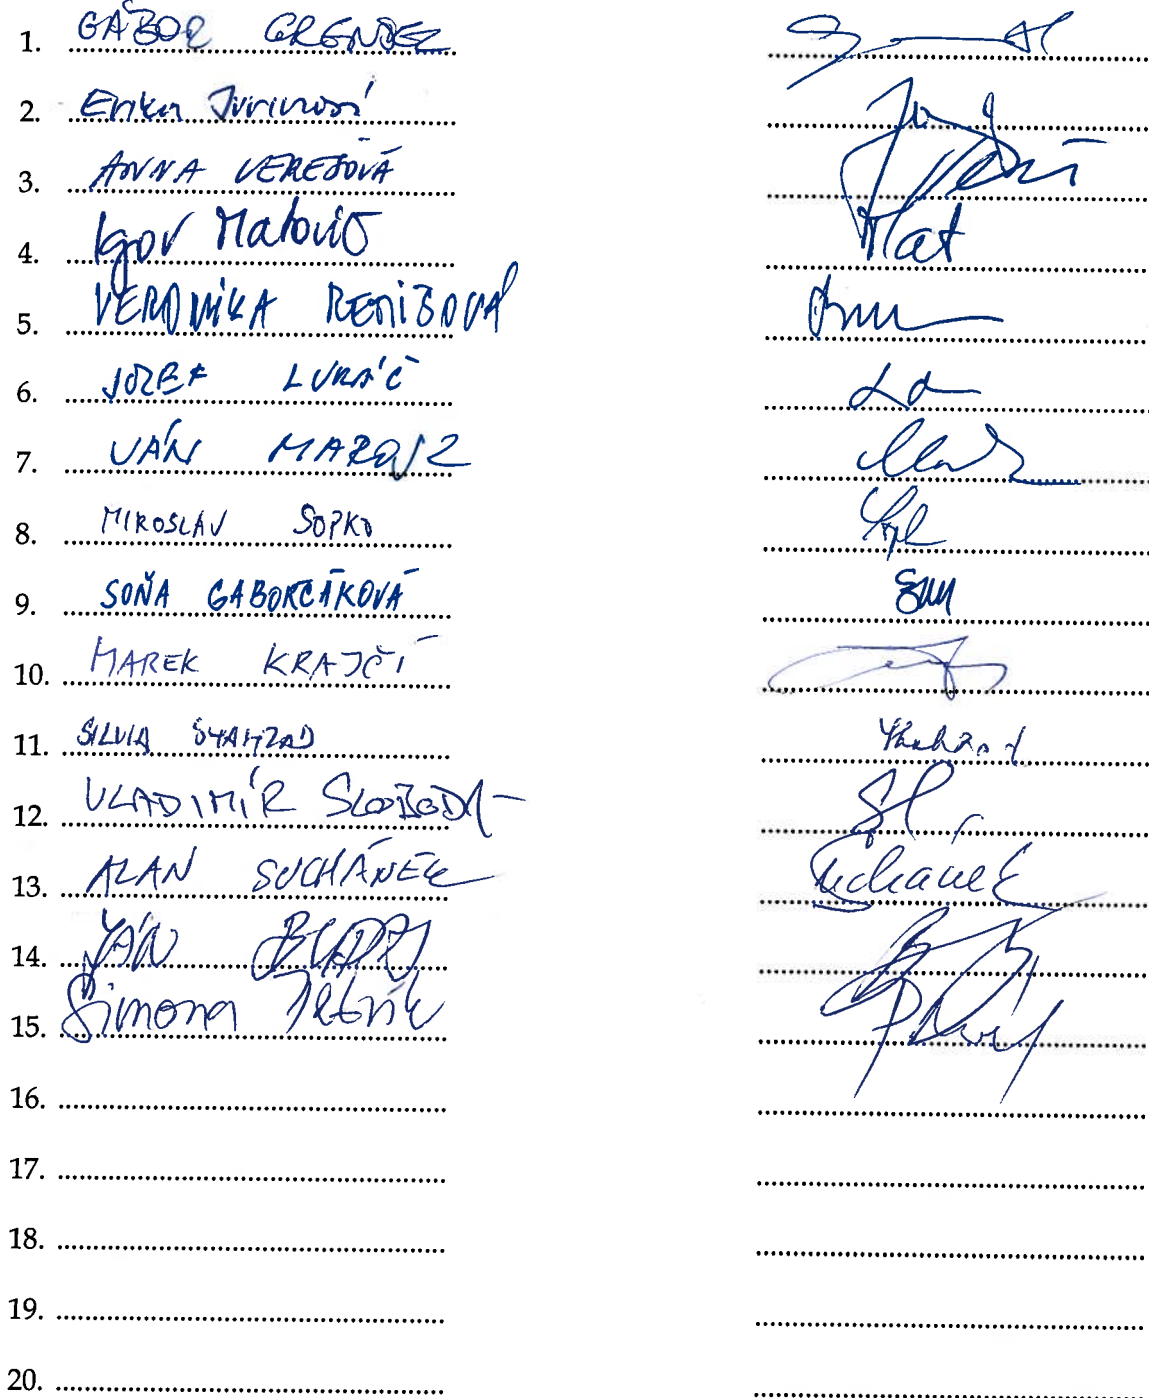 1. GÁBOR GRENDEL
2. Erika Jurinová
3. ANNA VEREŠOVÁ
4. Igor Matovič Mat
5. VERONIKA REMIŠOVÁ
6. JOZEF LUKÁČ
7. JÁN MAROSZ
8. MIROSLAV SOPKO
9. SOŇA GABORČÁKOVÁ
10. MAREK KRAJČÍ
11. SILVIA SHAHZAD Shahzad
12. VLADIMÍR SLOBODA
13. ALAN SUCHÁNEK Suchánek
14. JÁN BUDAJ
15. Simona Petrík
16.
17.
18.
19.
20.